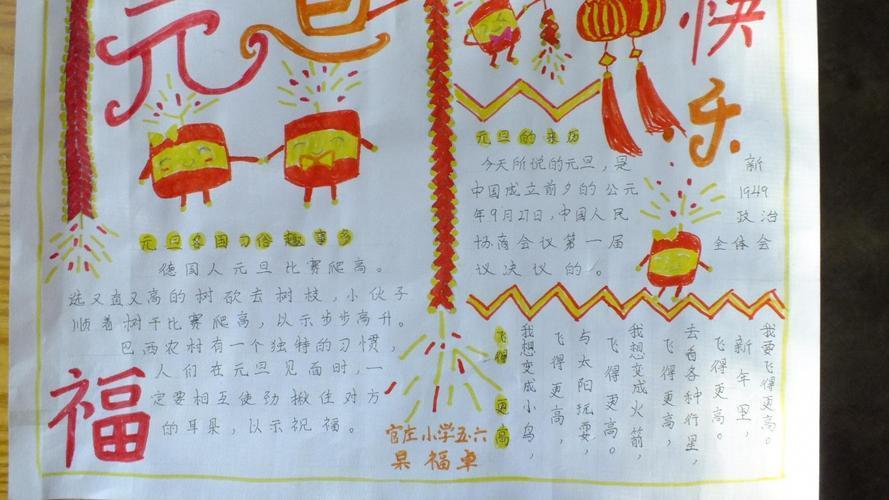 元旦
快乐
元旦各国习俗趣事多
德国人元旦比赛爬高。
选又直又高的树砍去树枝,小伙子
顺着树干比赛爬高,以示步步高升。
巴西农村有一个独特的习惯,
人们在元旦见面时,一
定要相互使劲揪住对方
的耳朵,以示祝福。
福
官庄小学五·六
杲福卓
元旦的来历
今天所说的元旦,是新
中国成立前夕的公元1949
年9月27日,中国人民政治
协商会议第一届全体会
议决议的。
飞得更高
我想变成小鸟,
飞得更高,
与太阳玩耍,
飞得更高。
我想变成火箭,
飞得更高,
去看各种行星,
飞得更高。
新年里,
我要飞得更高。